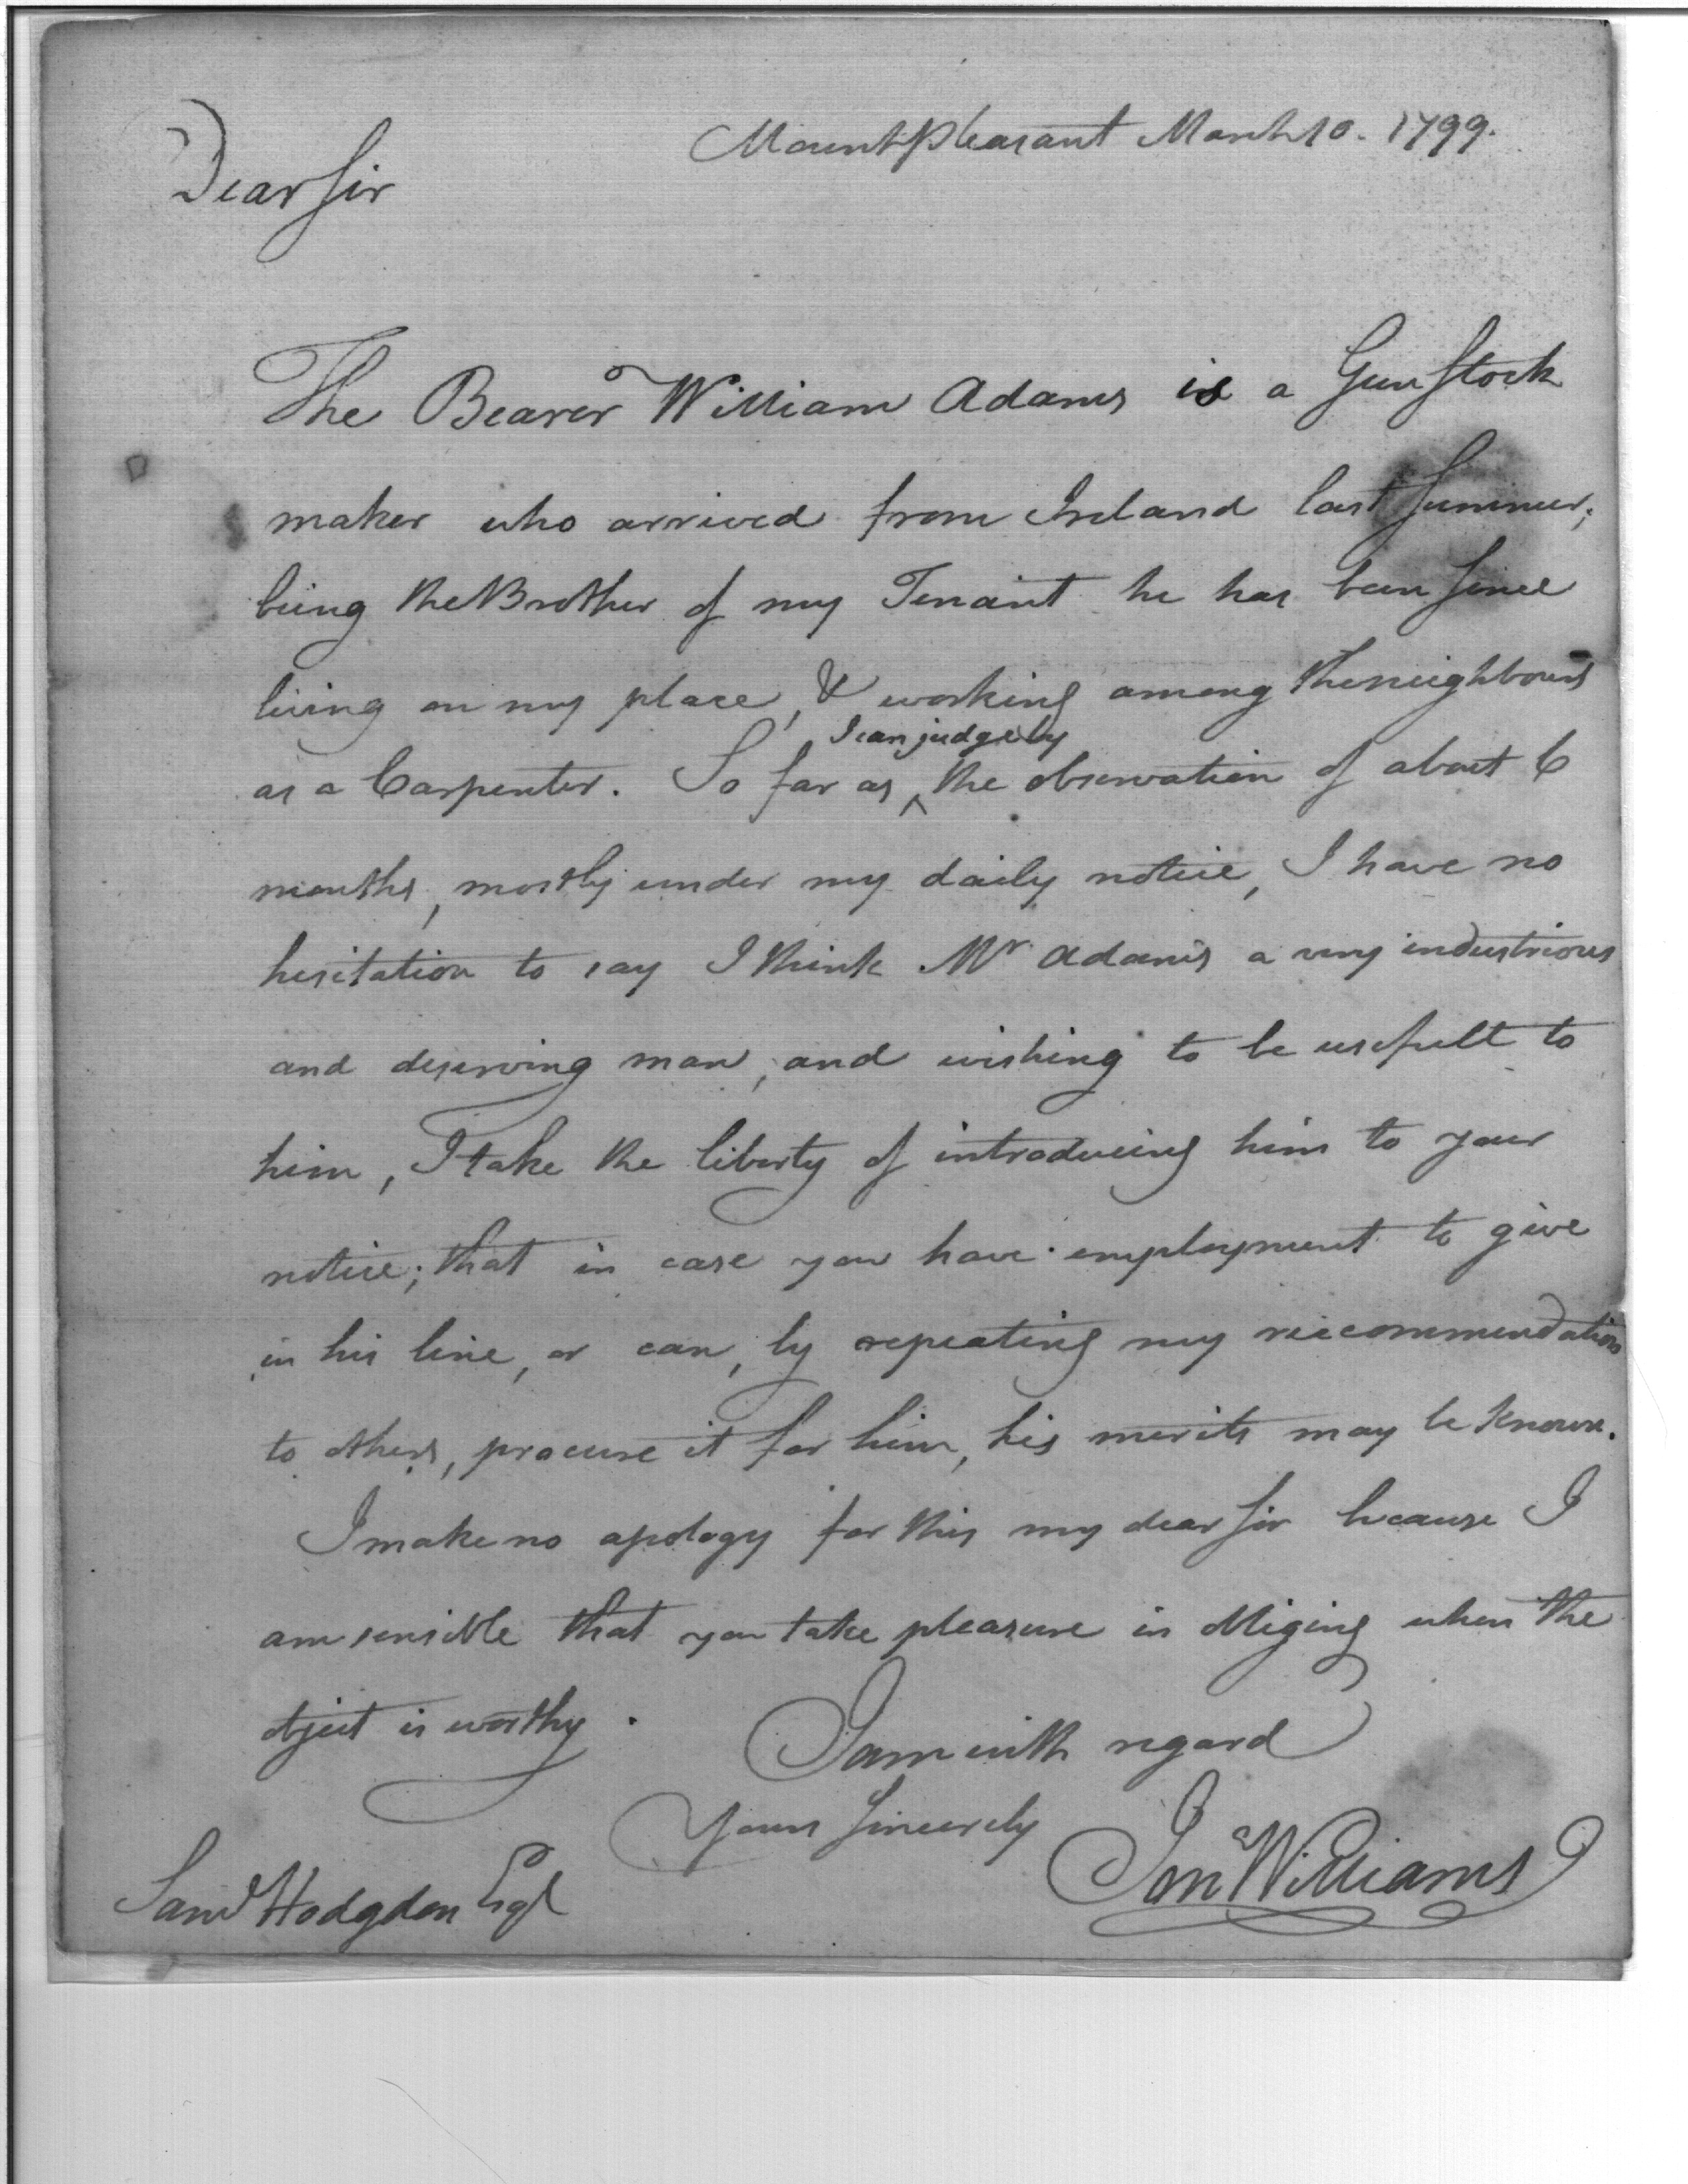 Mount pleasant March 10. 1799.
Dear Sir
The Bearer William Adams is a Gun Stock
maker who arrived from Ireland last Summer,
being the Brother of my Tenant he has been since
living on my place, & working among the neighbours
I can judge by
as a Carpenter. So far as ^ the observation of about 6
months, mostly under my daily notice, I have no
hesitation to say I think Mr Adams a very industrious
and deserving man, and wishing to be usefull to
him, I take the liberty of introducing him to your
notice; that in case you have employment to give
in his line, or can, by repeating my reccommendation
to others, procure it for him, his merits may be known.
I make no apology for this my dear Sir because I
am sensible that you take pleasure in obliging when the
object is worthy.
I am with regard
Yours Sincerely
Jona Williams
Saml Hodgdon Esqr